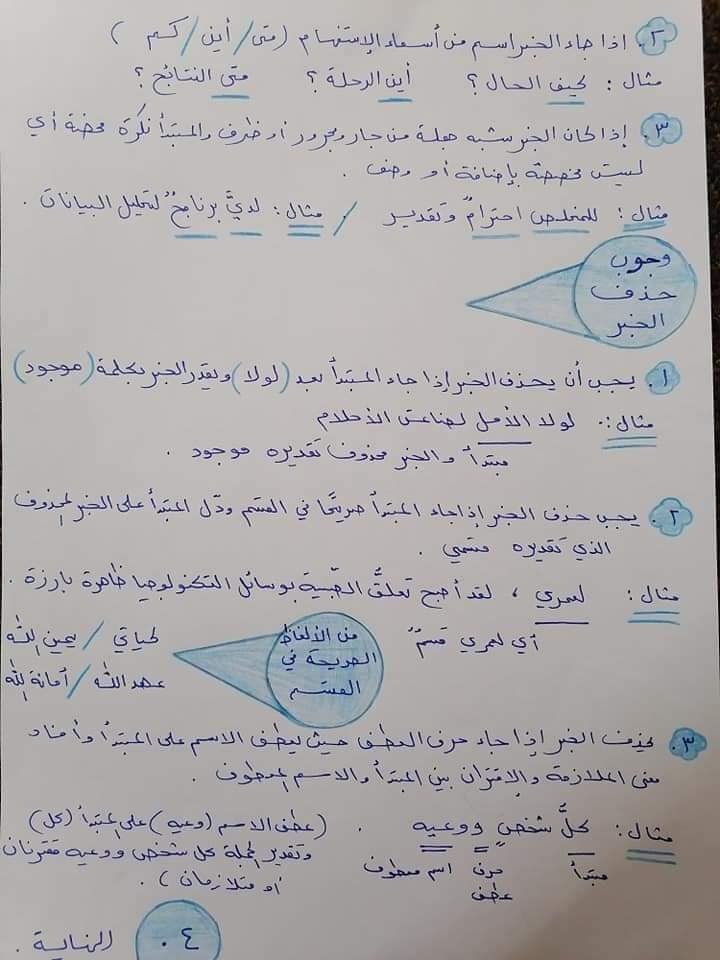 ٢. إذا جاء الخبر اسم من أسماء الإستفهام (متى / أين / كم)
مثال : كيف الحال ؟ أين الرحلة ؟ متى النتائج ؟
٣. إذا كان الخبر شبه جملة من جار ومجرور أو ظرف والمبتدأ نكرة محضة أي
ليست مخصصة بإضافة أو وصف .
مثال : للمخلص احترامٌ وتقدير / مثال : لديَّ برنامجٌ لتحليل البيانات .
وجوب
حذف
الخبر
١. يجب أن يحذف الخبر إذا جاء المبتدأ بعد (لولا) ويقدر الخبر بكلمة (موجود)
مثال : لولا الأمل لضاعت الأحلام
مبتدأ والخبر محذوف تقديره موجود .
٢. يجب حذف الخبر إذا جاء المبتدأ صريحًا في القسم ودّل المبتدأ على الخبر المحذوف
الذي تقديره قسمي .
مثال : لعمري ، لقد أصبح تعلقُّ الصّبية بوسائل التكنولوجيا ظاهرة بارزة .
أي لعمري قسمٌ
من الألفاظ
الصريحة في
القسم
لحياتي / يمين الله
عهد الله / أمانة الله
٣. يحذف الخبر إذا جاء حرف العطف حيث يعطف الاسم على المبتدأ وأفاد
معنى الملازمة والإقتران بين المبتدأ والاسم المعطوف .
مثال : كلُّ شخصٍ ووعيه . (عطف الاسم (وعيه) على المبتدأ (كل)
مبتدأ حرف عطف اسم معطوف
وتقدير الجملة كل شخص ووعيه مقترنان
أو متلازمان) .
٠٤
النهاية .